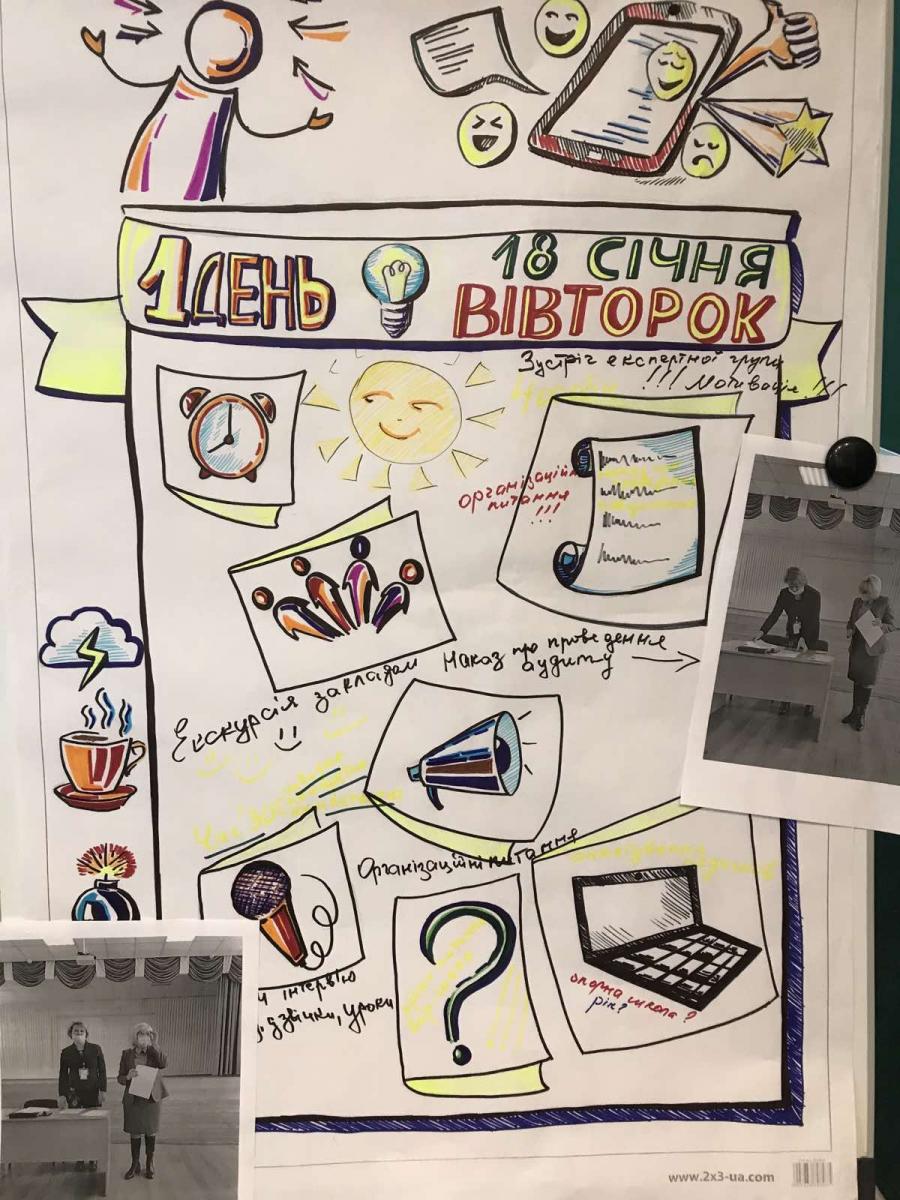 1 ДЕНЬ
18 СІЧНЯ
ВІВТОРОК
Зустріч експертної групи
!!! Мотивація !!!
організаційн
питання
!!!
Наказ про проведення
аудиту
Екскурсія закладом
Організаційні питання
інтерв'ю
дзвінки, уроки
опорна школа?
рік?
www.2x3-ua.com